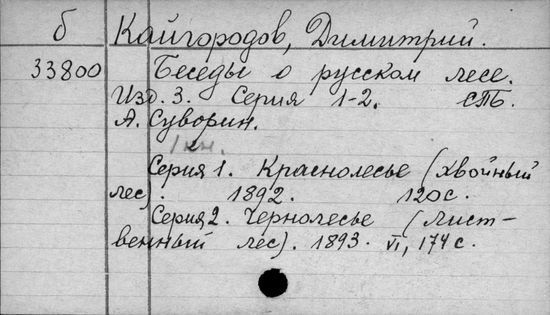 б Кайгородов, Димитрий.
33800 Беседы о русском лесе.
Изд. 3. Серия 1-2. СПБ.
А. Суворин.
1 кн.
Серия 1. Краснолесье (хвойный
лес). 1892. 120с.
Серия 2. Чернолесье (лист-
венный лес). 1893. VI, 174 с.